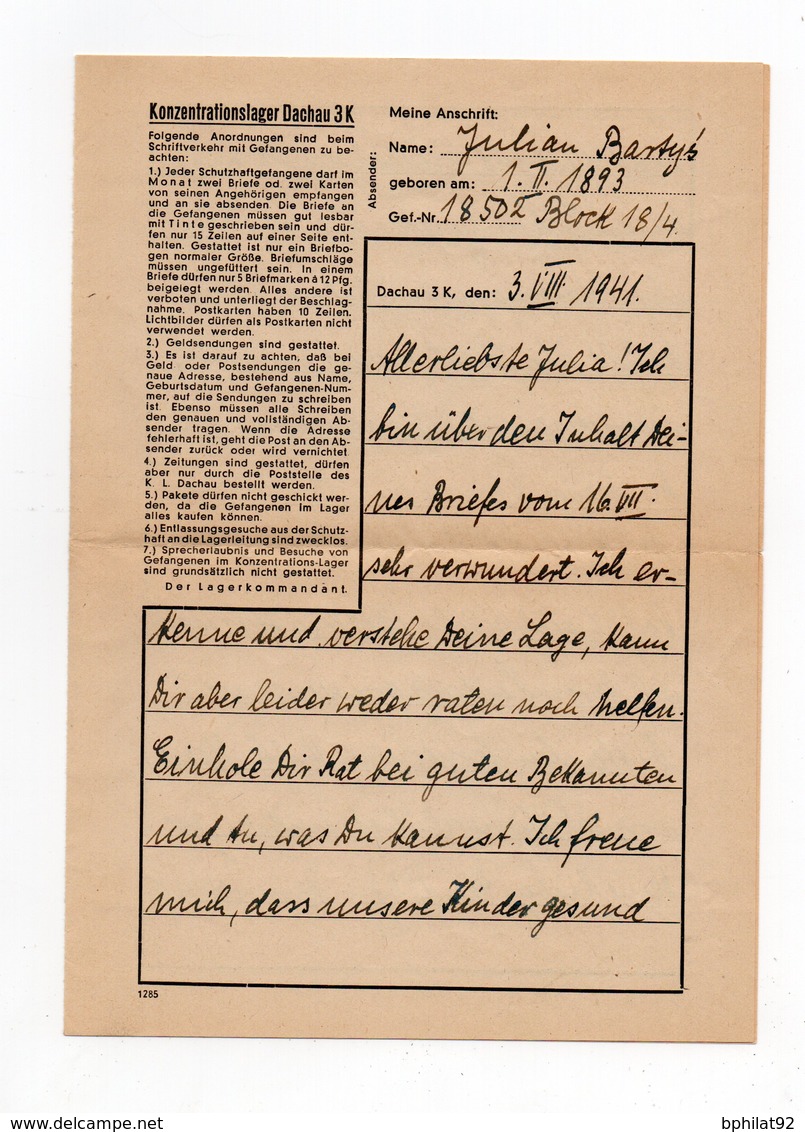 Konzentrationslager Dachau 3 K
Folgende Anordnungen sind beim
Schriftverkehr mit Gefangenen zu be-
achten:
1.) Jeder Schutzhaftgefangene darf im
Monat zwei Briefe od. zwei Karten
von seinen Angehörigen empfangen
und an sie absenden. Die Briefe an
die Gefangenen müssen gut lesbar
mit Tinte geschrieben sein und dür-
fen nur 15 Zeilen auf einer Seite ent-
halten. Gestattet ist nur ein Briefbo-
gen normaler Größe. Briefumschläge
müssen ungefüttert sein. In einem
Briefe dürfen nur 5 Briefmarken à 12 Pfg.
beigelegt werden. Alles andere ist
verboten und unterliegt der Beschlag-
nahme. Postkarten haben 10 Zeilen.
Lichtbilder dürfen als Postkarten nicht
verwendet werden.
2.) Geldsendungen sind gestattet.
3.) Es ist darauf zu achten, daß bei
Geld- oder Postsendungen die ge-
naue Adresse, bestehend aus Name,
Geburtsdatum und Gefangenen-Num-
mer, auf die Sendungen zu schreiben
ist. Ebenso müssen alle Schreiben
den genauen und vollständigen Ab-
sender tragen. Wenn die Adresse
fehlerhaft ist, geht die Post an den Ab-
sender zurück oder wird vernichtet.
4.) Zeitungen sind gestattet, dürfen
aber nur durch die Poststelle des
K. L. Dachau bestellt werden.
5.) Pakete dürfen nicht geschickt wer-
den, da die Gefangenen im Lager
alles kaufen können.
6.) Entlassungsgesuche aus der Schutz-
haft an die Lagerleitung sind zwecklos.
7.) Sprecherlaubnis und Besuche von
Gefangenen im Konzentrations-Lager
sind grundsätzlich nicht gestattet.
Der Lagerkommandant.
Absender:
Meine Anschrift:
Name: Julian Bartyś
geboren am: 1. II. 1893
Gef.-Nr. 18502 Block 18/4.
Dachau 3 K, den: 3. VIII. 1941.
Allerliebste Julia! Ich
bin über den Inhalt Dei-
nes Briefes vom 16. VII.
sehr verwundert. Ich er-
kenne und verstehe Deine Lage, kann
Dir aber leider weder raten noch helfen.
Einhole Dir Rat bei guten Bekannten
und tu, was Du kannst. Ich freue
mich, dass unsere Kinder gesund
1285
bphilat92